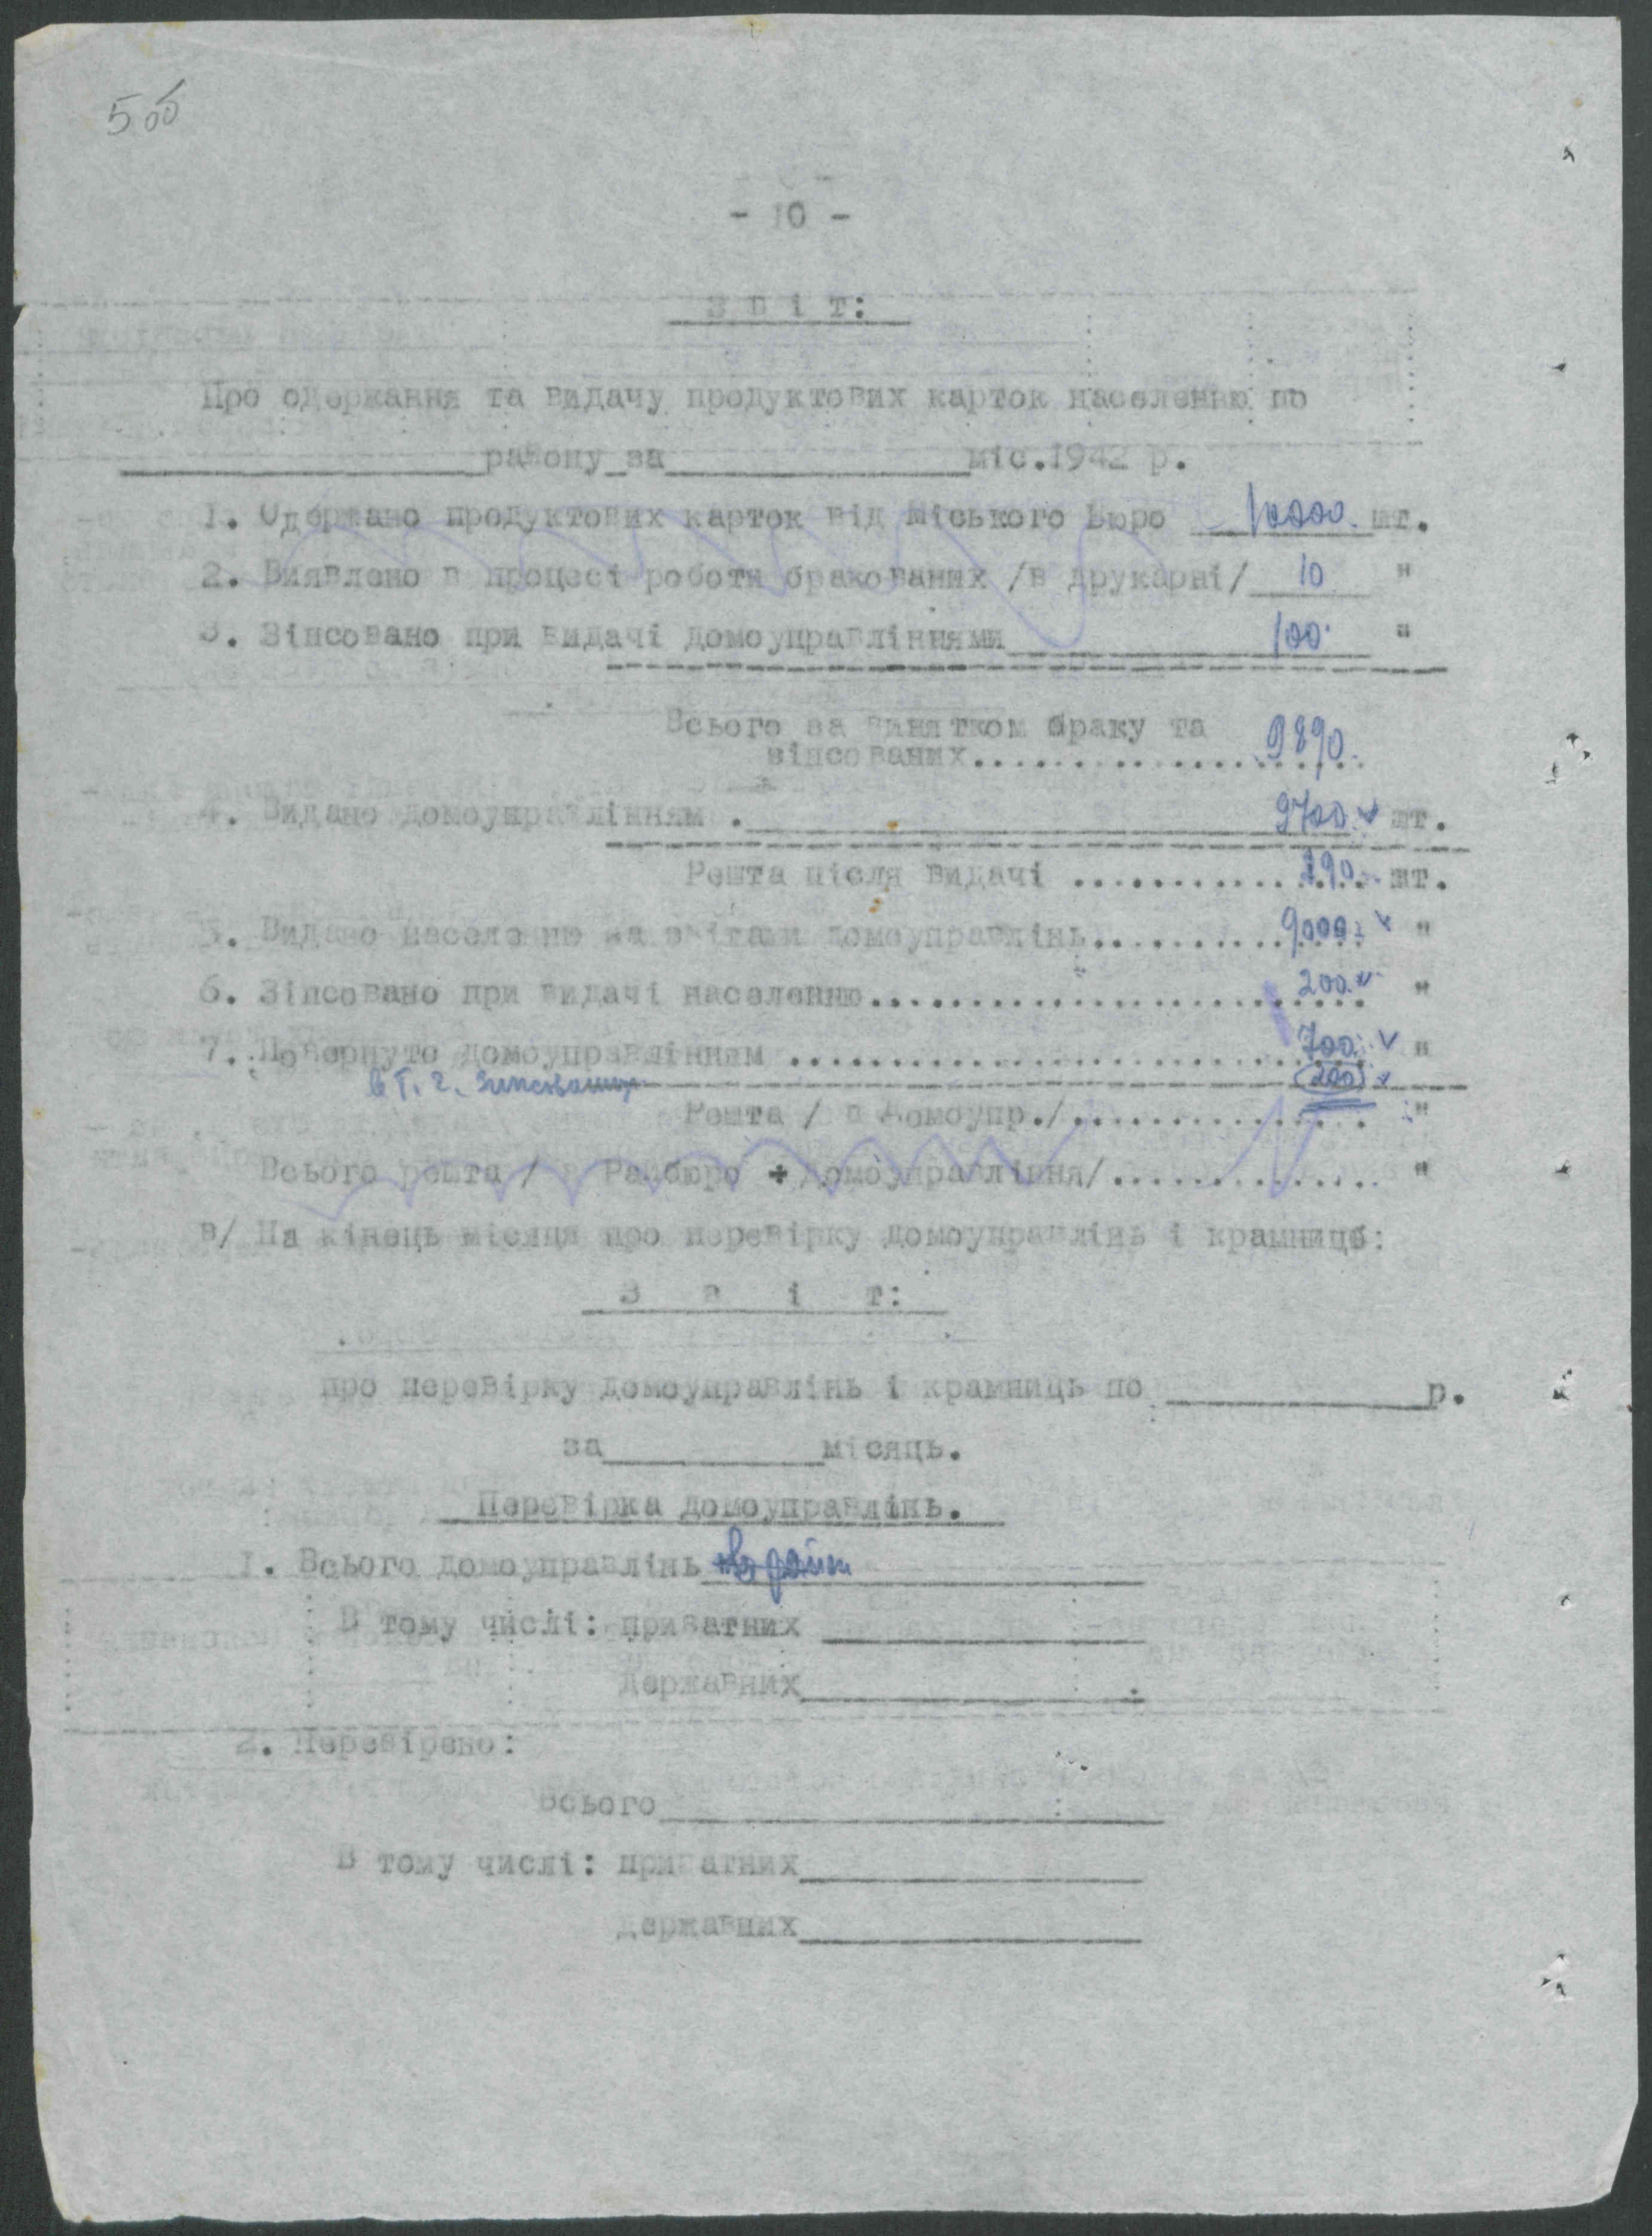 5об
- 10 -
З в і т:
Про одержання та видачу продуктових карток населенню по
____________району за____________міс.1942 р.
1. Одержано продуктових карток від Міського Бюро 10000. шт.
2. Виявлено в процесі роботи бракованих /в друкарні/ 10 "
3. Зіпсовано при видачі домоуправліннями 100. "
Всього за винятком браку та
зіпсованих.................... 9890.
4. Видано домоуправлінням . 9700. шт.
Решта після видачі ................ 190. шт.
5. Видано населенню за звітами домоуправлінь.............. 9000 "
6. Зіпсовано при видачі населенню......................... 200. "
7. Повернуто домоуправлінням ............................. 700. "
в т. ч. зіпсованих (200)
Решта / в Домоупр./............... "
Всього решта / в Райбюро + Домоуправління/.............. "
в/ На кінець місяця про перевірку домоуправлінь і крамниць:
З в і т:
про перевірку домоуправлінь і крамниць по ____________р.
за__________місяць.
Перевірка домоуправлінь.
1. Всього домоуправлінь
В тому числі: приватних ____________
державних____________
2. Перевірено:
Всього____________
В тому числі: приватних____________
державних____________